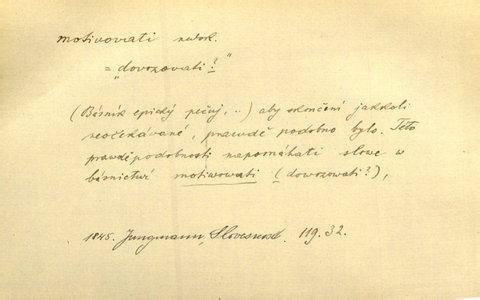 motivovati nedok.
= „dovozovati?"
(Básník epický pečuj, ..) aby skončení jakkoli
neočekávané, pravdě podobno bylo. Této
pravděpodobnosti napomáhati slowe w
básnictwí motiwowati (dowozowati?),
1845. Jungmann, Slovesnost. 119. 32.